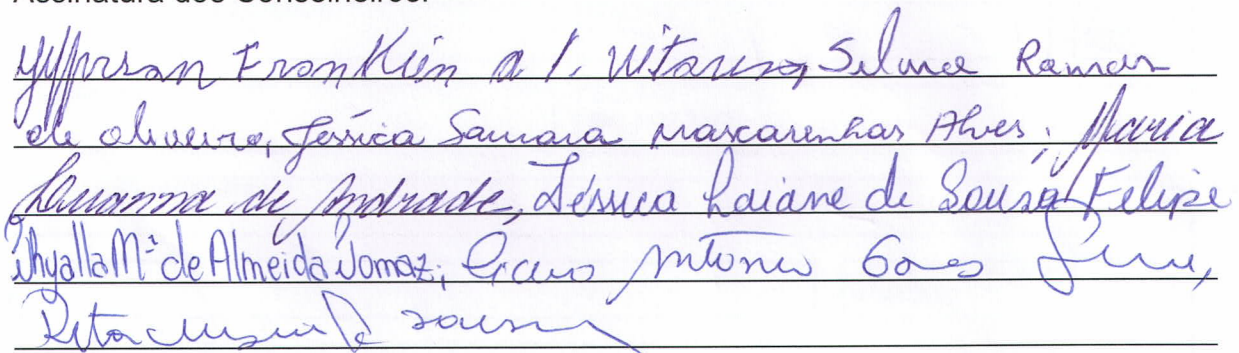 Assinatura dos Conselheiros:
Franklin a l. Vitorino, Selma Ramos
de oliveira, Jéssica Samara Mascarenhas Alves, Maria
Luanna de Andrade, Jéssica Laiane de Sousa Felipe
Thyalla Mª de Almeida Tomaz, Cicero Antonio Gomes
Rita Maria de Sousa